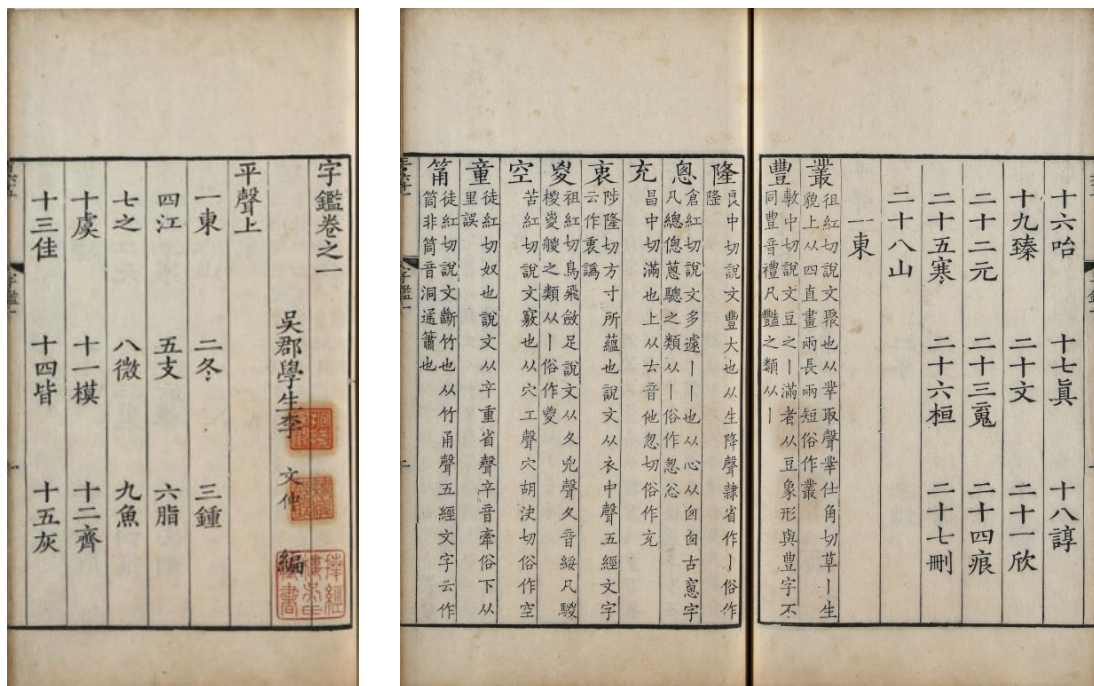 字鑑卷之一
吳郡學生李 文仲 編
平聲上
一東 二冬 三鍾
四江 五支 六脂
七之 八微 九魚
十虞 十一模 十二齊
十三佳 十四皆 十五灰
十六咍 十七眞 十八諄
十九臻 二十文 二十一欣
二十二元 二十三䰟 二十四痕
二十五寒 二十六桓 二十七刪
二十八山
一東
叢 祖紅切說文聚也从丵取聲丵仕角切草丨生
貌上从四直畫兩長兩短俗作藂
豐 敷中切說文豆之丨滿者从豆象形與豊字不
同豊音禮凡豔之類从丨
隆 良中切說文豐大也从生降聲隷省作丨俗作
隆
悤 倉紅切說文多遽丨丨也从心从囱囱古窻字
凡總傯蔥驄之類从丨俗作怱忩
充 昌中切滿也上从𠫓音他忽切俗作充
衷 陟隆切方寸所蘊也說文从衣中聲五經文字
云作衷譌
㚇 祖紅切鳥飛斂足說文从夊兇聲夊音綏凡騣
椶㚇艐之類从丨俗作㚇
空 苦紅切說文竅也从穴工聲穴胡決切俗作空
童 徒紅切奴也說文从䇂重省聲䇂音愆俗下从
里誤
筩 徒紅切說文斷竹也从竹甬聲五經文字云作
筒非筒音洞通簫也